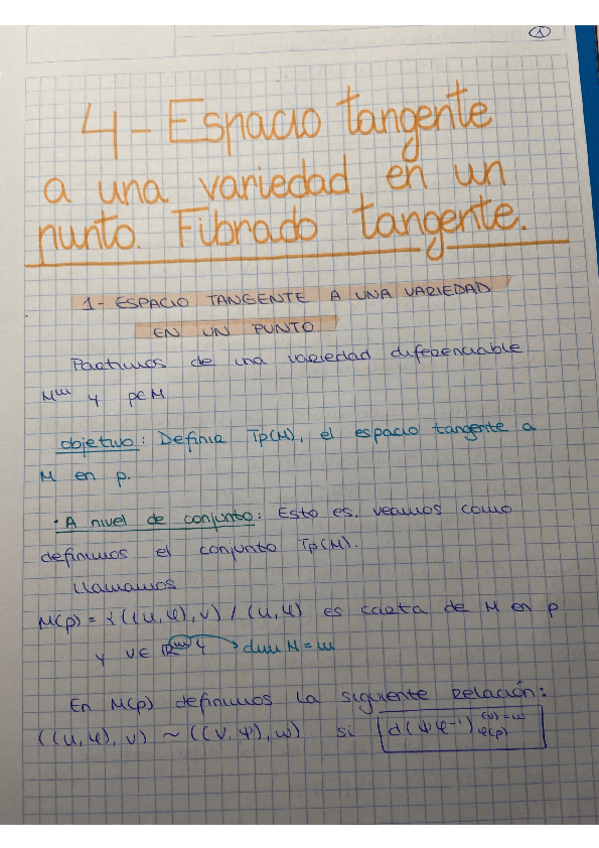 1
4- Espacio tangente
a una variedad en un
punto. Fibrado tangente.
1- ESPACIO TANGENTE A UNA VARIEDAD
EN UN PUNTO.
Partimos de una variedad diferenciable
Mᵐ y p∈M
objetivo: Definir Tp(M), el espacio tangente a
M en p.
· A nivel de conjunto: Esto es, veamos como
definimos el conjunto Tp(M).
Llamamos
M(p) = {((U,φ),v) / (U,φ) es carta de M en p
y v∈ ℝᵐ} → dim M = m
En M(p) definimos la siguiente relación:
((U,φ),v) ~ ((V,ψ),w) si d(ψφ⁻¹)φ(p) (v)=w